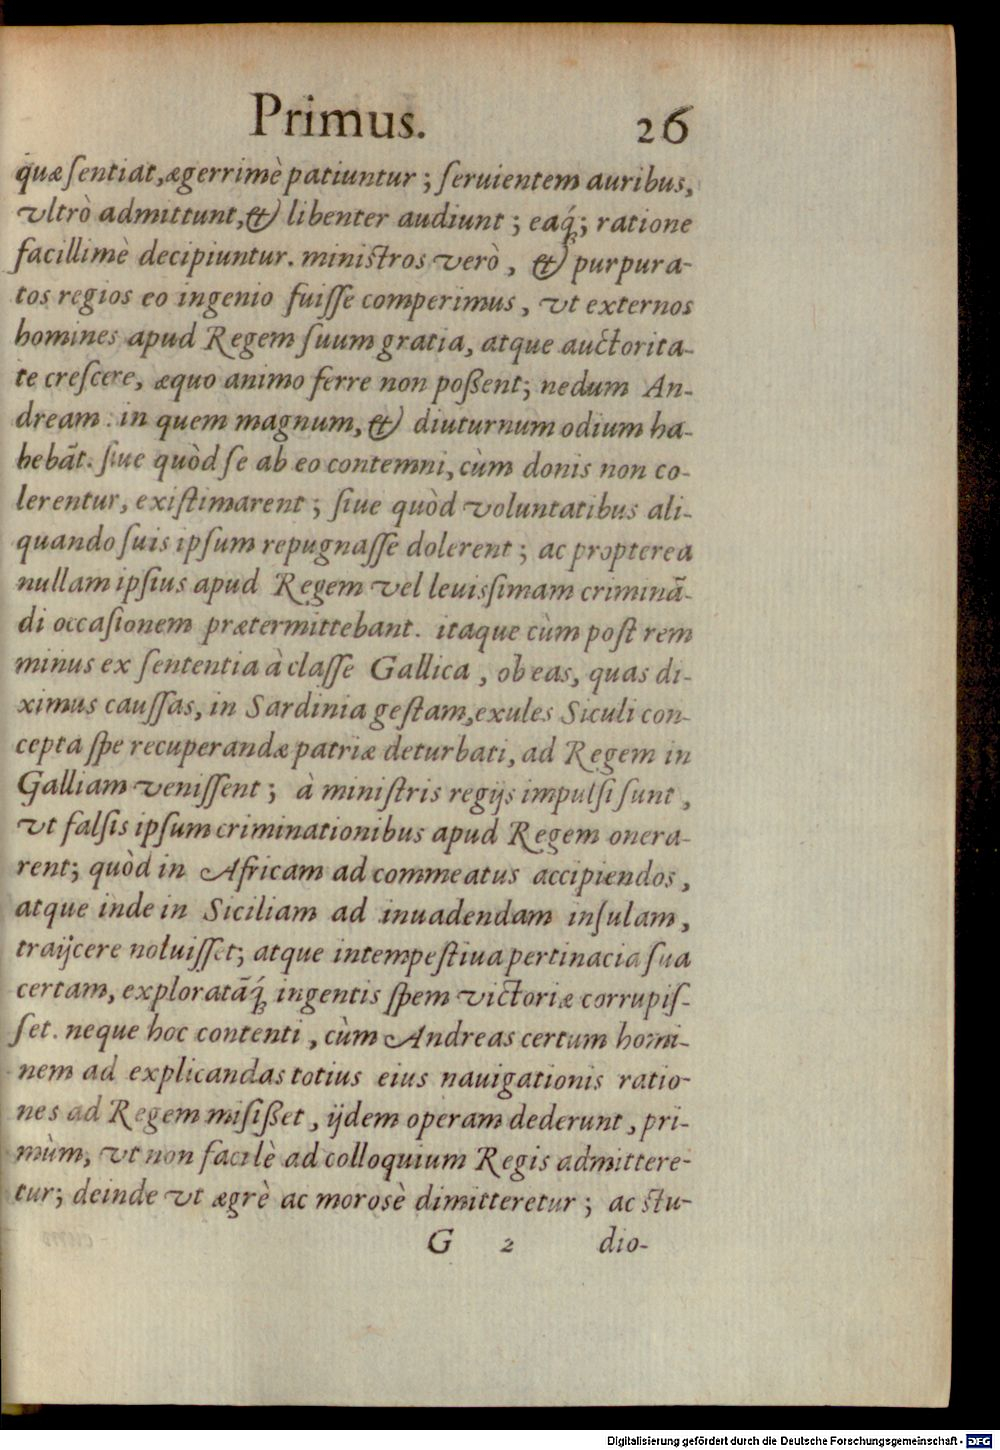 Primus. 26
quæ ſentiat, ægerrimè patiuntur; ſeruientem auribus,
vltrò admittunt, & libenter audiunt; eaq́; ratione
facillimè decipiuntur. miniſtros verò, & purpura-
tos regios eo ingenio fuiſſe comperimus, vt externos
homines apud Regem ſuum gratia, atque auctorita-
te creſcere, æquo animo ferre non poßent; nedum An-
dream: in quem magnum, & diuturnum odium ha-
bebãt. ſiue quòd ſe ab eo contemni, cùm donis non co-
lerentur, exiſtimarent; ſiue quòd voluntatibus ali-
quando ſuis ipſum repugnaſſe dolerent; ac propterea
nullam ipſius apud Regem vel leuisſimam criminã-
di occaſionem prætermittebant. itaque cùm poſt rem
minus ex ſententia à claſſe Gallica, ob eas, quas di-
ximus cauſſas, in Sardinia geſtam, exules Siculi con-
cepta ſpe recuperandæ patriæ deturbati, ad Regem in
Galliam veniſſent; à miniſtris regijs impulſi ſunt,
vt falſis ipſum criminationibus apud Regem onera-
rent; quòd in Africam ad commeatus accipiendos,
atque inde in Siciliam ad inuadendam inſulam,
traijcere noluiſſet; atque intempeſtiua pertinacia ſua
certam, exploratãq́ ingentis ſpem victoriæ corrupiſ-
ſet. neque hoc contenti, cùm Andreas certum homi-
nem ad explicandas totius eius nauigationis ratio-
nes ad Regem miſißet, ijdem operam dederunt, pri-
mùm, vt non facilè ad colloquium Regis admittere-
tur; deinde vt ægrè ac morosè dimitteretur; ac ſtu-
G 2 dio-
Digitalisierung gefördert durch die Deutsche Forschungsgemeinschaft - DFG